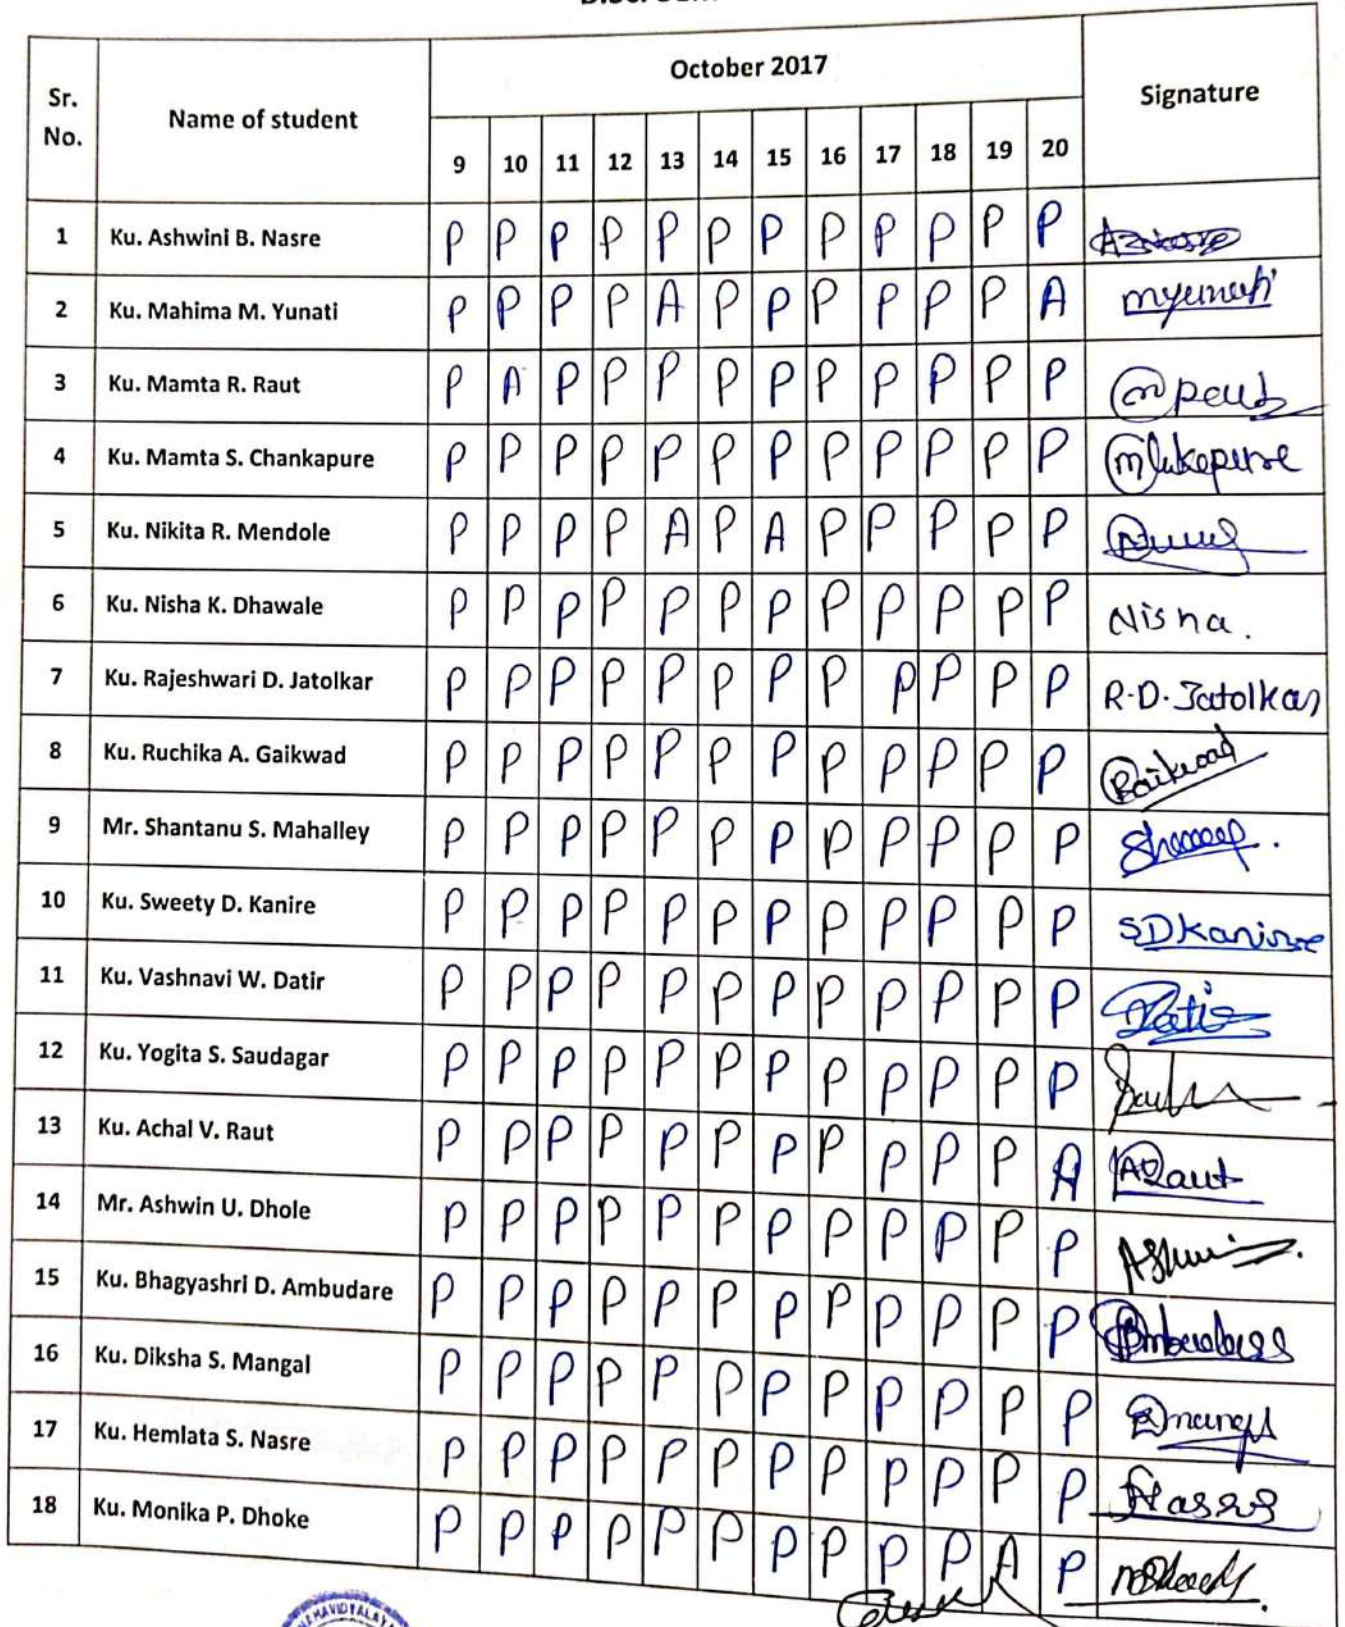 October 2017
Sr. No. Name of student Signature
9 10 11 12 13 14 15 16 17 18 19 20
1 Ku. Ashwini B. Nasre P P P P P P P P P P P P
2 Ku. Mahima M. Yunati P P P P A P P P P P P A
3 Ku. Mamta R. Raut P A P P P P P P P P P P
4 Ku. Mamta S. Chankapure P P P P P P P P P P P P
5 Ku. Nikita R. Mendole P P P P A P A P P P P P
6 Ku. Nisha K. Dhawale P P P P P P P P P P P P Nisha.
7 Ku. Rajeshwari D. Jatolkar P P P P P P P P P P P P R.D.Jatolkar
8 Ku. Ruchika A. Gaikwad P P P P P P P P P P P P
9 Mr. Shantanu S. Mahalley P P P P P P P P P P P P
10 Ku. Sweety D. Kanire P P P P P P P P P P P P SDKanire
11 Ku. Vashnavi W. Datir P P P P P P P P P P P P
12 Ku. Yogita S. Saudagar P P P P P P P P P P P P
13 Ku. Achal V. Raut P P P P P P P P P P P A ARaut
14 Mr. Ashwin U. Dhole P P P P P P P P P P P P
15 Ku. Bhagyashri D. Ambudare P P P P P P P P P P P P
16 Ku. Diksha S. Mangal P P P P P P P P P P P P
17 Ku. Hemlata S. Nasre P P P P P P P P P P P P
18 Ku. Monika P. Dhoke P P P P P P P P P P A P